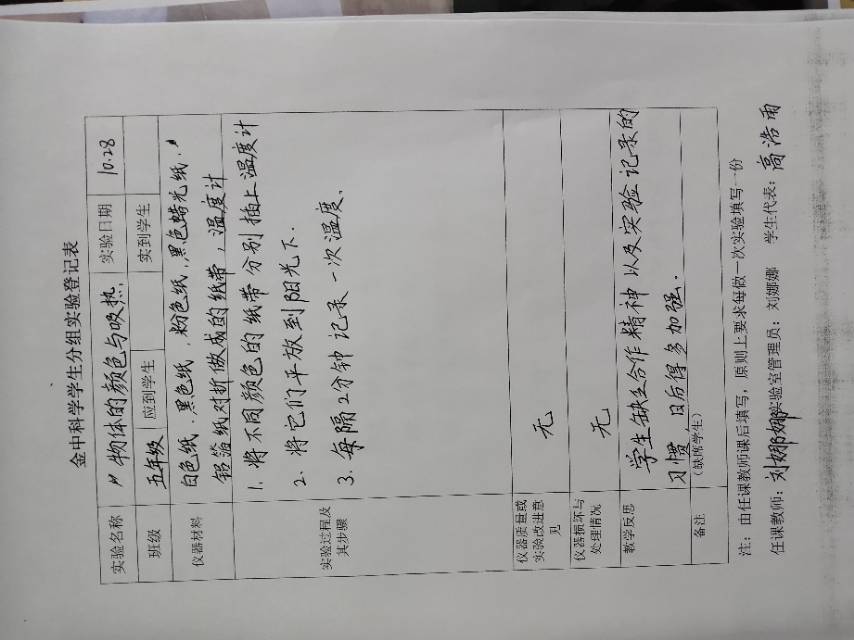 金中科学学生分组实验登记表
实验名称 〃物体的颜色与吸热〃 实验日期 10.28
班级 五年级 应到学生 实到学生
仪器材料 白色纸、黑色纸、粉色纸、黑色蜡光纸、
铝箔纸对折做成的纸带，温度计
实验过程及
其步骤
1. 将不同颜色的纸带分别插上温度计
2. 将它们平放到阳光下.
3. 每隔2分钟记录一次温度.
仪器质量或
实验改进意
见
无
仪器损坏与
处理情况
无
教学反思 学生缺乏合作精神以及实验记录的
习惯，日后得多加强.
备注 (缺席学生)
注：由任课教师课后填写，原则上要求每做一次实验填写一份
任课教师：刘娜娜 实验室管理员：刘娜娜 学生代表：高浩雨